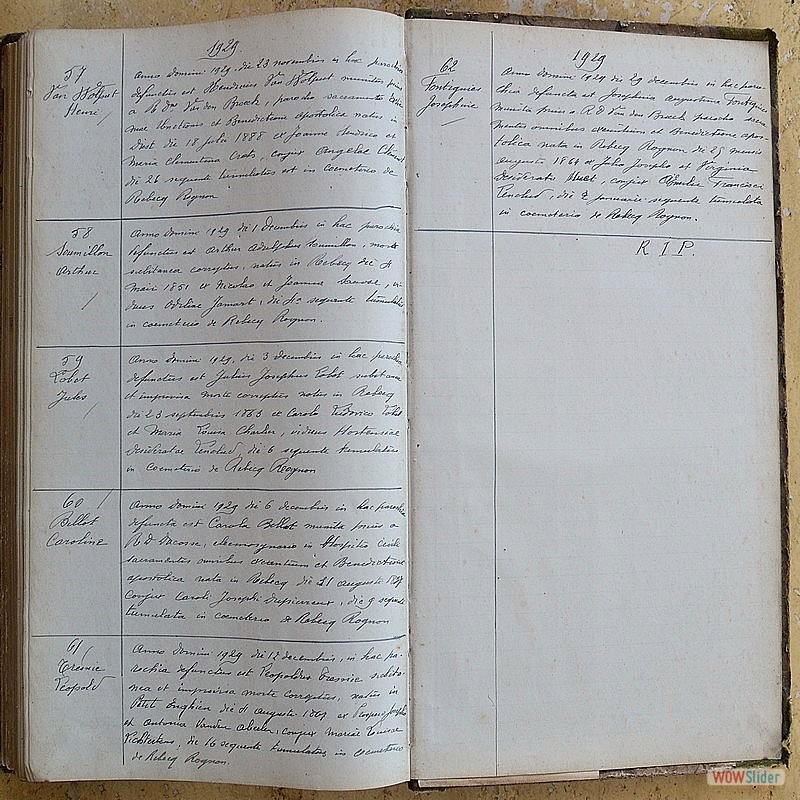 1929.
57
Van Holput
Henri
Anno Domini 1929, die 23 novembris in hac parochia
defunctus est Henricus Van Holput munitus prius
a R Dno Van den Broeck, parocho sacramentis
Unctionis et Benedictione apostolica natus in
die 18 julii 1888 ex Joanne et
Maria Clementina conjux Angelae
die 26 sequente tumulatus est in coemeterio de
Rebecq Rognon
58
Soumillon
Arthur
Anno Domini 1929 die 1 Decembris in hac parochia
defunctus est Arthur Adolphus Soumillon, morte
subitanea correptus, natus in Rebecq die
maii 1851 ex Nicolao et Joanna
Odeliae Jamart, die 4a sequente tumulatus
in coemeterio de Rebecq Rognon.
59
Lobet
Jules
Anno Domini 1929, die 3 Decembris in hac parochia
defunctus est Julius Josephus Lobet subitanea
et improvisa morte correptus natus in Rebecq
die 23 septembris 1863 ex Carolo Ludovico Lobet
et Maria Louisa Charlier, viduus Hortensiae
Desideratae die 6 sequente tumulatus
in coemeterio de Rebecq Rognon
60
Bellot
Caroline
Anno Domini 1929 die 6 decembris in hac parochia
defuncta est Carola Bellot munita prius a
R D Dacosse, eleemosynario in Hospitio Civili
sacramentis omnibus exeuntium et Benedictione
apostolica nata in Rebecq die 21 augusti
conjux Caroli Josephi die 9 sequente
tumulata in coemeterio de Rebecq Rognon
61
Leopold
Anno Domini 1929 die 12 decembris, in hac pa-
rochia defunctus est Leopoldus subita-
nea et improvisa morte correptus, natus in
Petit Enghien die 11 augusti 1869 ex
et Antonia Vander conjux Mariae Louisae
die 16 sequente tumulatus in coemeterio
de Rebecq Rognon.
1929
62
Fontignies
Josephine
Anno Domini 1929 die 29 decembris in hac paro-
chia defuncta est Josephina Augustina Fontignies
munita prius a R. D Van den Broeck parocho sacra
mentis omnibus exeuntium et Benedictione apos-
tolica nata in Rebecq Rognon die 25 mensis
augusti 1864 ex Julio Josepho et Virginia
Desiderata Huet, conjux Francisci
die 2 januarii sequente tumulata
in coemeterio de Rebecq Rognon.
R I P.
WOWSlider